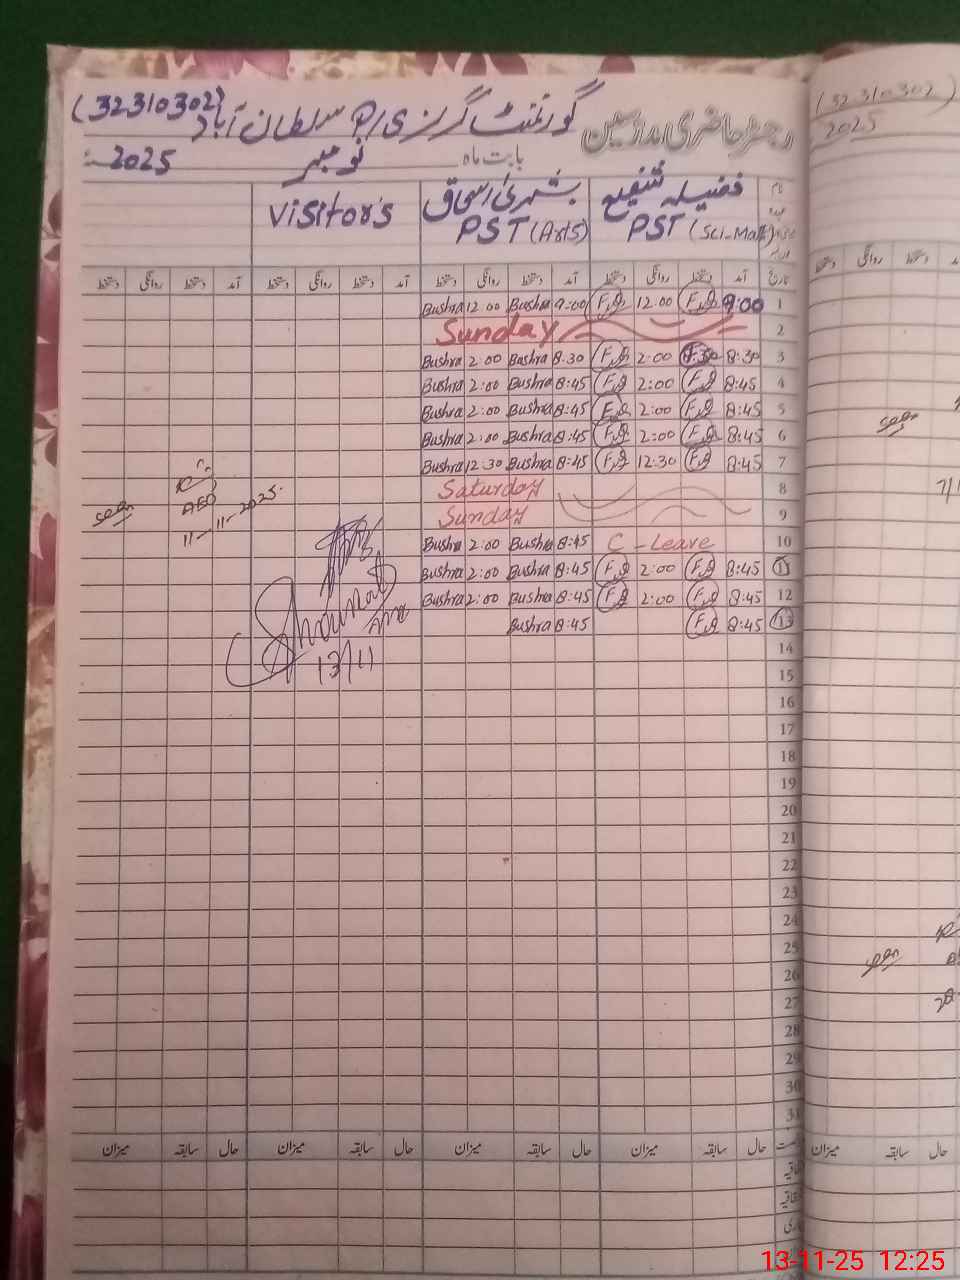 رجسٹر حاضری مدرسین گورنمنٹ گرلز ی/P سلطان آباد (32310302)
بابت ماہ نومبر 2025ء
نام فضیلہ شفیع بشریٰ اسحاق Visitor's
عہدہ PST (Sci-Math) PST (Arts)
تاریخ آمد دستخط روانگی دستخط آمد دستخط روانگی دستخط آمد دستخط روانگی دستخط آمد دستخط روانگی دستخط
1 9:00 12:00 9:00 Bushra 12:00 Bushra
2 Sunday
3 8:30 2:00 8:30 Bushra 2:00 Bushra
4 8:45 2:00 8:45 Bushra 2:00 Bushra
5 8:45 2:00 8:45 Bushra 2:00 Bushra
6 8:45 2:00 8:45 Bushra 2:00 Bushra
7 8:45 12:30 8:45 Bushra 12:30 Bushra
8 Saturday
9 Sunday
10 C-Leave 8:45 Bushra 2:00 Bushra
11 8:45 2:00 8:45 Bushra 2:00 Bushra
12 8:45 2:00 8:45 Bushra 2:00 Bushra
13 8:45 8:45 Bushra
14
15
16
17
18
19
20
21
22
23
24
25
26
27
28
29
30
31
seen
AEO
11-11-2025
13/11
حال سابقہ میزان حال سابقہ میزان حال سابقہ میزان حال سابقہ میزان
(32310302)
2025
روانگی دستخط
seen
seen
حال سابقہ میزان
13-11-25 12:25